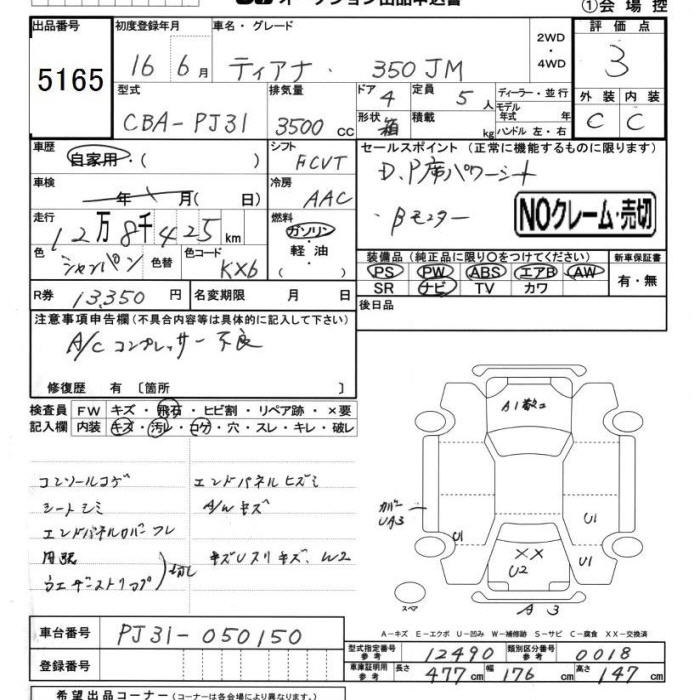 ①会場控
出品番号
5165
初度登録年月
16 6月
車名・グレード
ティアナ・ 350JM
2WD
・
4WD
評価点
3
型式
CBA-PJ31
排気量
3500 CC
ドア
4
定員
5 人
ディーラー・並行
モデル
年式 年
形状
箱
積載
kg
ハンドル 左・右
外装 内装
C C
車歴
自家用・( )
シフト
FCVT
セールスポイント (正常に機能するものに限ります)
D.P席パワーシート
・Bモニター
NOクレーム・売切
車検
年 月( 日)
冷房
AAC
走行
12万8千425 km
燃料
ガソリン
・
軽油
・
( )
色
シャンパン
色替
色コード
KX6
装備品 (純正品に限り○をつけてください)
PS PW ABS エアB AW
SR ナビ TV カワ
新車保証書
有・無
R券 13,350 円
名変期限 月 日
後日品
注意事項申告欄(不具合内容等は具体的に記入して下さい)
A/Cコンプレッサー不良
修復歴 有 〔箇所 〕
検査員
記入欄
FW キズ・飛石・ヒビ割・リペア跡・×要
内装 キズ・汚レ・コゲ・穴・スレ・キレ・破レ
コンソールコゲ
シートシミ
エンドパネルカバーワレ
ウェザーストリップ
エンドパネルヒズミ
A/Wキズ
キズUスリキズ、W2
A1
カバー
UA3
U1
U1
U1
XX
U2
A3
スペア
A-キズ E-エクボ U-凹み W-補修跡 S-サビ C-腐食 XX-交換済
車台番号 PJ31-050150
登録番号
型式指定番号
参考
12490
類別区分番号
参考
0018
車庫証明用
参考
長さ 477cm 幅 176cm 高さ 147cm
希望出品コーナー(コーナーは各会場により異なります。)